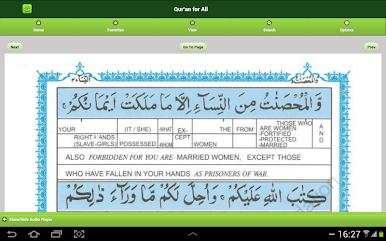 Qur'an for All
Home Favorites View Search Options
Next Go To Page Prev
وَّالْمُحْصَنٰتُ مِنَ النِّسَآءِ اِلَّا مَا مَلَكَتْ اَيْمَانُكُمْ ۚ
YOUR (IT / SHE) -WHAT EX- THE FROM THOSE WHO A
RIGHT HANDS POSSESSED -WHOM CEPT WOMEN ARE WOMEN N
(SLAVE-GIRLS) -FORTIFIED D
-PROTECTED
-MARRIED
ALSO FORBIDDEN FOR YOU ARE MARRIED WOMEN, EXCEPT THOSE
WHO HAVE FALLEN IN YOUR HANDS AS PRISONERS OF WAR.
كِتٰبَ اللّٰهِ عَلَيْكُمْ ۚ وَاُحِلَّ لَكُمْ مَّا وَرَآءَ ذٰلِكُمْ
Show/Hide Audio Player
16:27